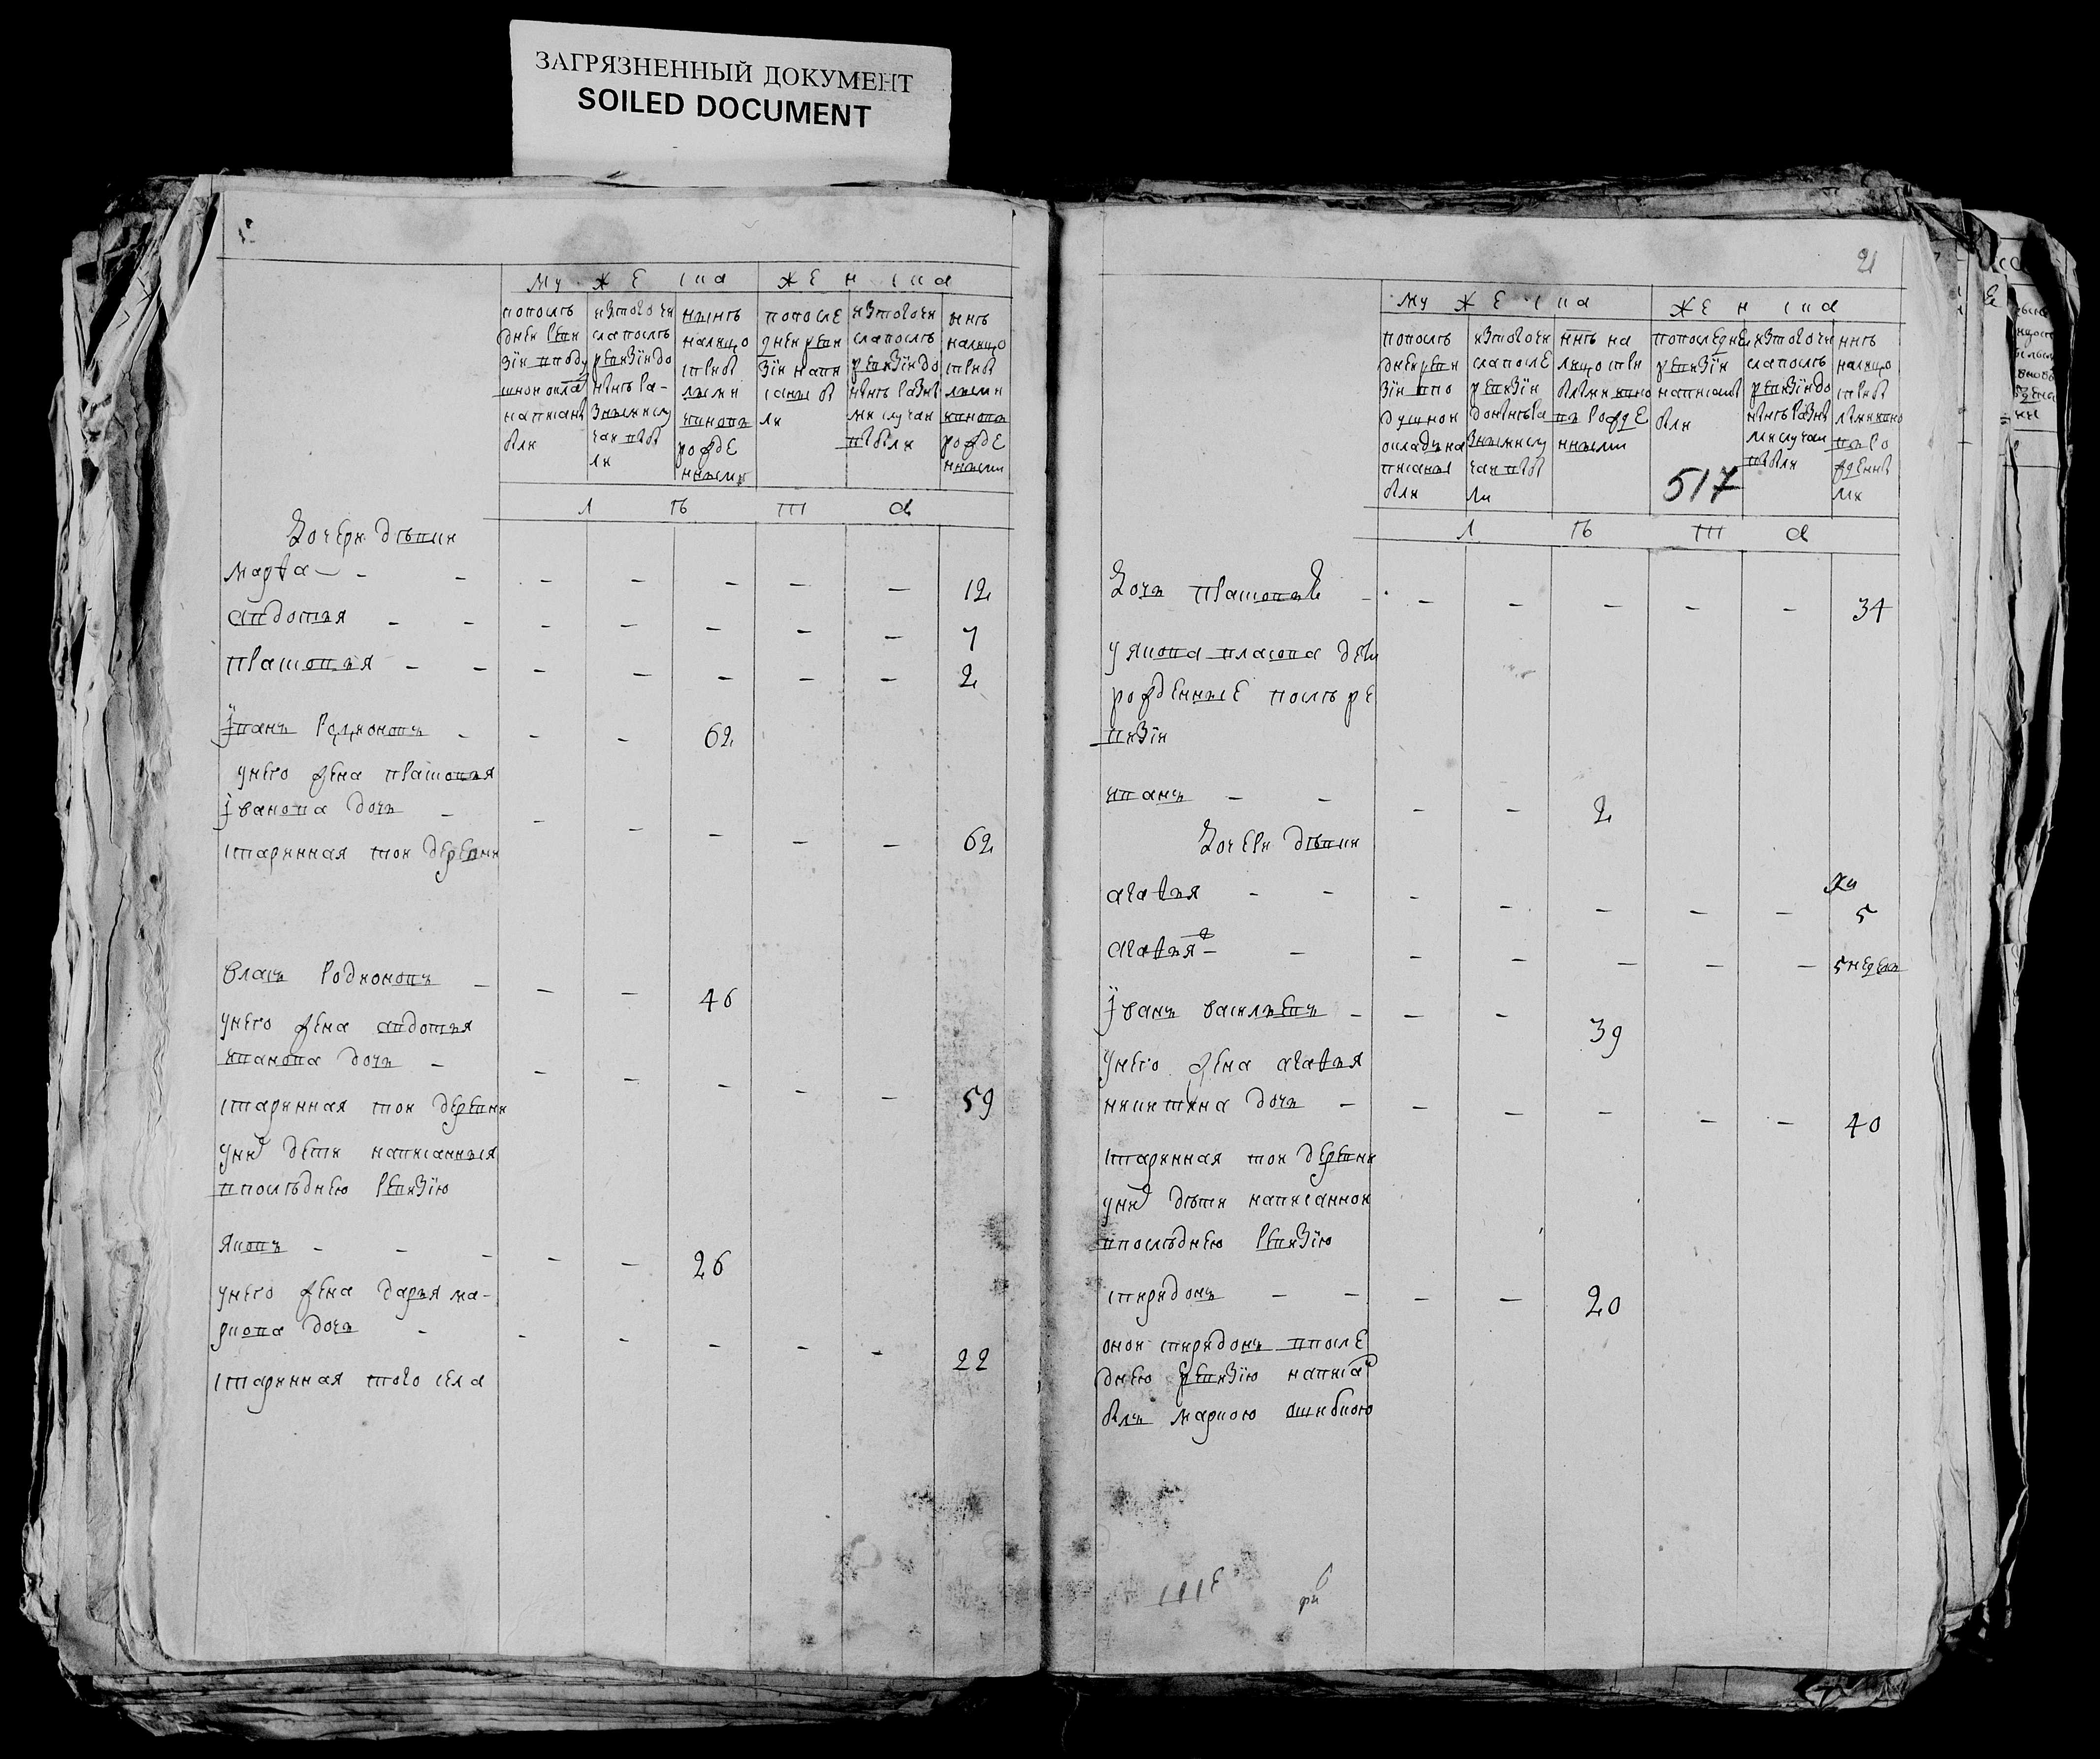 ЗАГРЯЗНЕННЫЙ ДОКУМЕНТ
SOILED DOCUMENT
Му же ска
Жен ска
попослѣ
дней реви
зіи вподу
шной окла
написаны
были
изтого чи
сла послѣ
ревизіи до
нынѣ ра-
зными слу
чаи выбы
ли
нынѣ
налицо
сприбы
лыми
ивновь
рожде
нными
попосле
дней реви
зіи напи
саны бы
ли
изтого чи
сла послѣ
ревизіи до
нынѣ разны
ми случаи
выбыли
нынѣ
налицо
сприбы
лыми
ивновь
рожде
нными
л ѣ т а
дочери дѣвки
марѳа - - - - - - - 12
авдотья - - - - - - - 7
прасковья - - - - - - - 2
Іванъ родионовъ - - - 62
унего жена прасковья
Іванова дочь - - - - - - 62
старинная той деревни
власъ родионовъ - - - 46
унего жена авдотья
иванова дочь - - - - - - 59
старинная той деревни
унихъ дети написанныя
впослѣднею ревизію
яковъ - - - - - 26
унего жена дарья ма-
ркова дочь - - - - - - 22
старинная того села
21
Му же ска
Жен ска
попослѣ
дней реви
зіи впо
душной
окладъ на
писаны
были
изтого чи
сла после
ревизіи
донынѣ ра
зными слу
чаи выбы
ли
ннѣ на
лицо спри
былыми вно
вь рожде
нными
попоследней
ревизіи
написаны
были
изтого чи
сла послѣ
ревизіи до
нынѣ разны
ми случаи
выбыли
ннѣ
налицо
сприбы
лыми вно
вь ро
жденны
ми
517
л ѣ т а
дочь прасковья - - - - - - 34
у якова власова дети
рожденные послѣ ре
визіи
иванъ - - - - 2
дочери дѣвки
агафья - - - - - - - 5
агафья - - - - - - - 5 недель
Іванъ васильевъ - - - 39
унего жена агафья
никитина дочь - - - - - - 40
старинная той деревни
унихъ дѣти написанной
впослѣднею ревизію
спиридонъ - - - - 20
оной спиридонъ впосле
днею ревизію написанъ
былъ маркою ошибкою